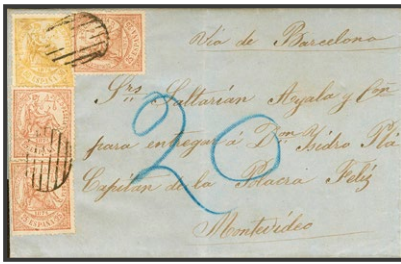 Via de Barcelona
Srs. Saltarián Ayala y Cñia
para entregar á Don Ysidro Plá
Capitan de la Polacra Feliz
Montevideo
20
ESPAÑA